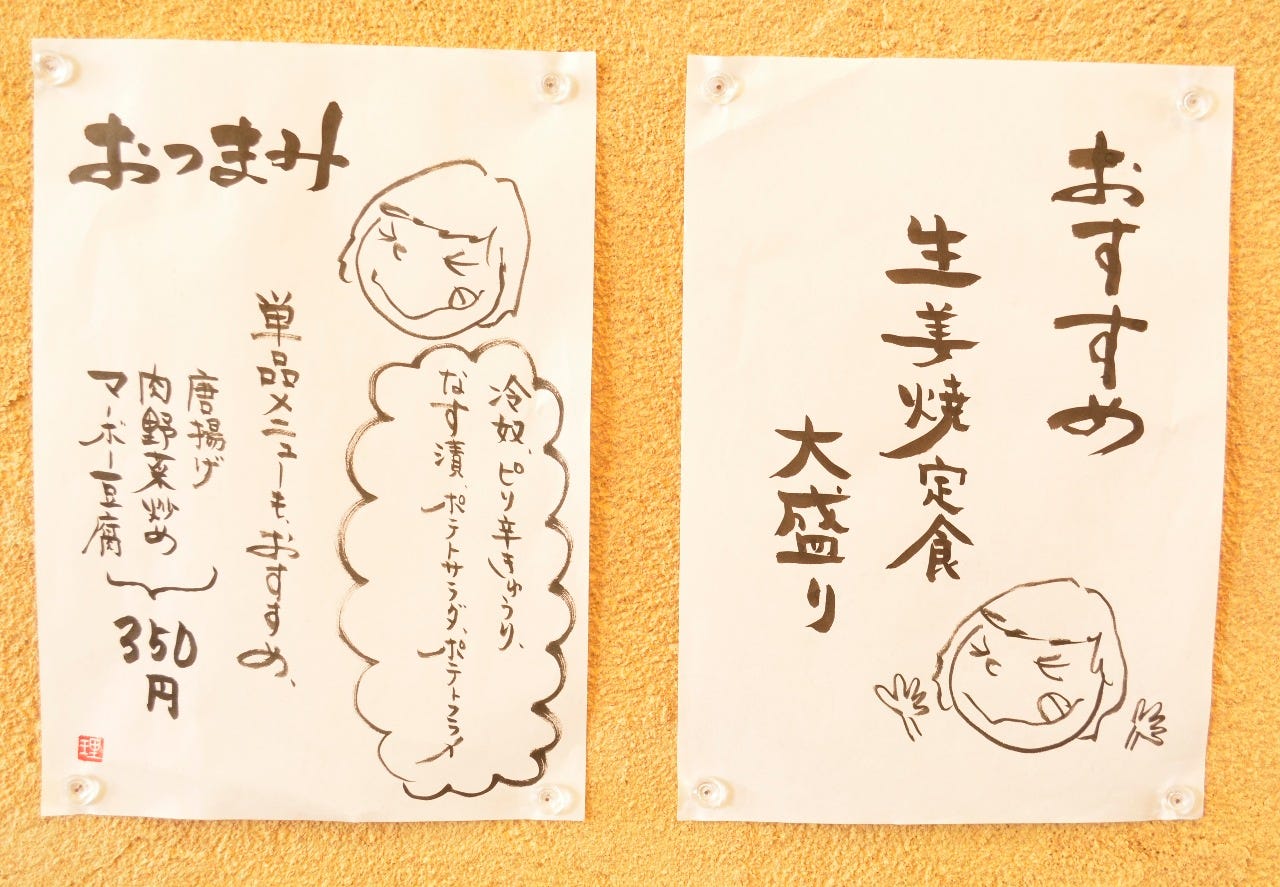 おつまみ
冷奴、ピリ辛きゅうり、
なす漬、ポテトサラダ、ポテトフライ
単品メニューも、おすすめ、
唐揚げ
肉野菜炒め
マーボー豆腐
350
円
理
おすすめ
生姜焼定食
大盛り